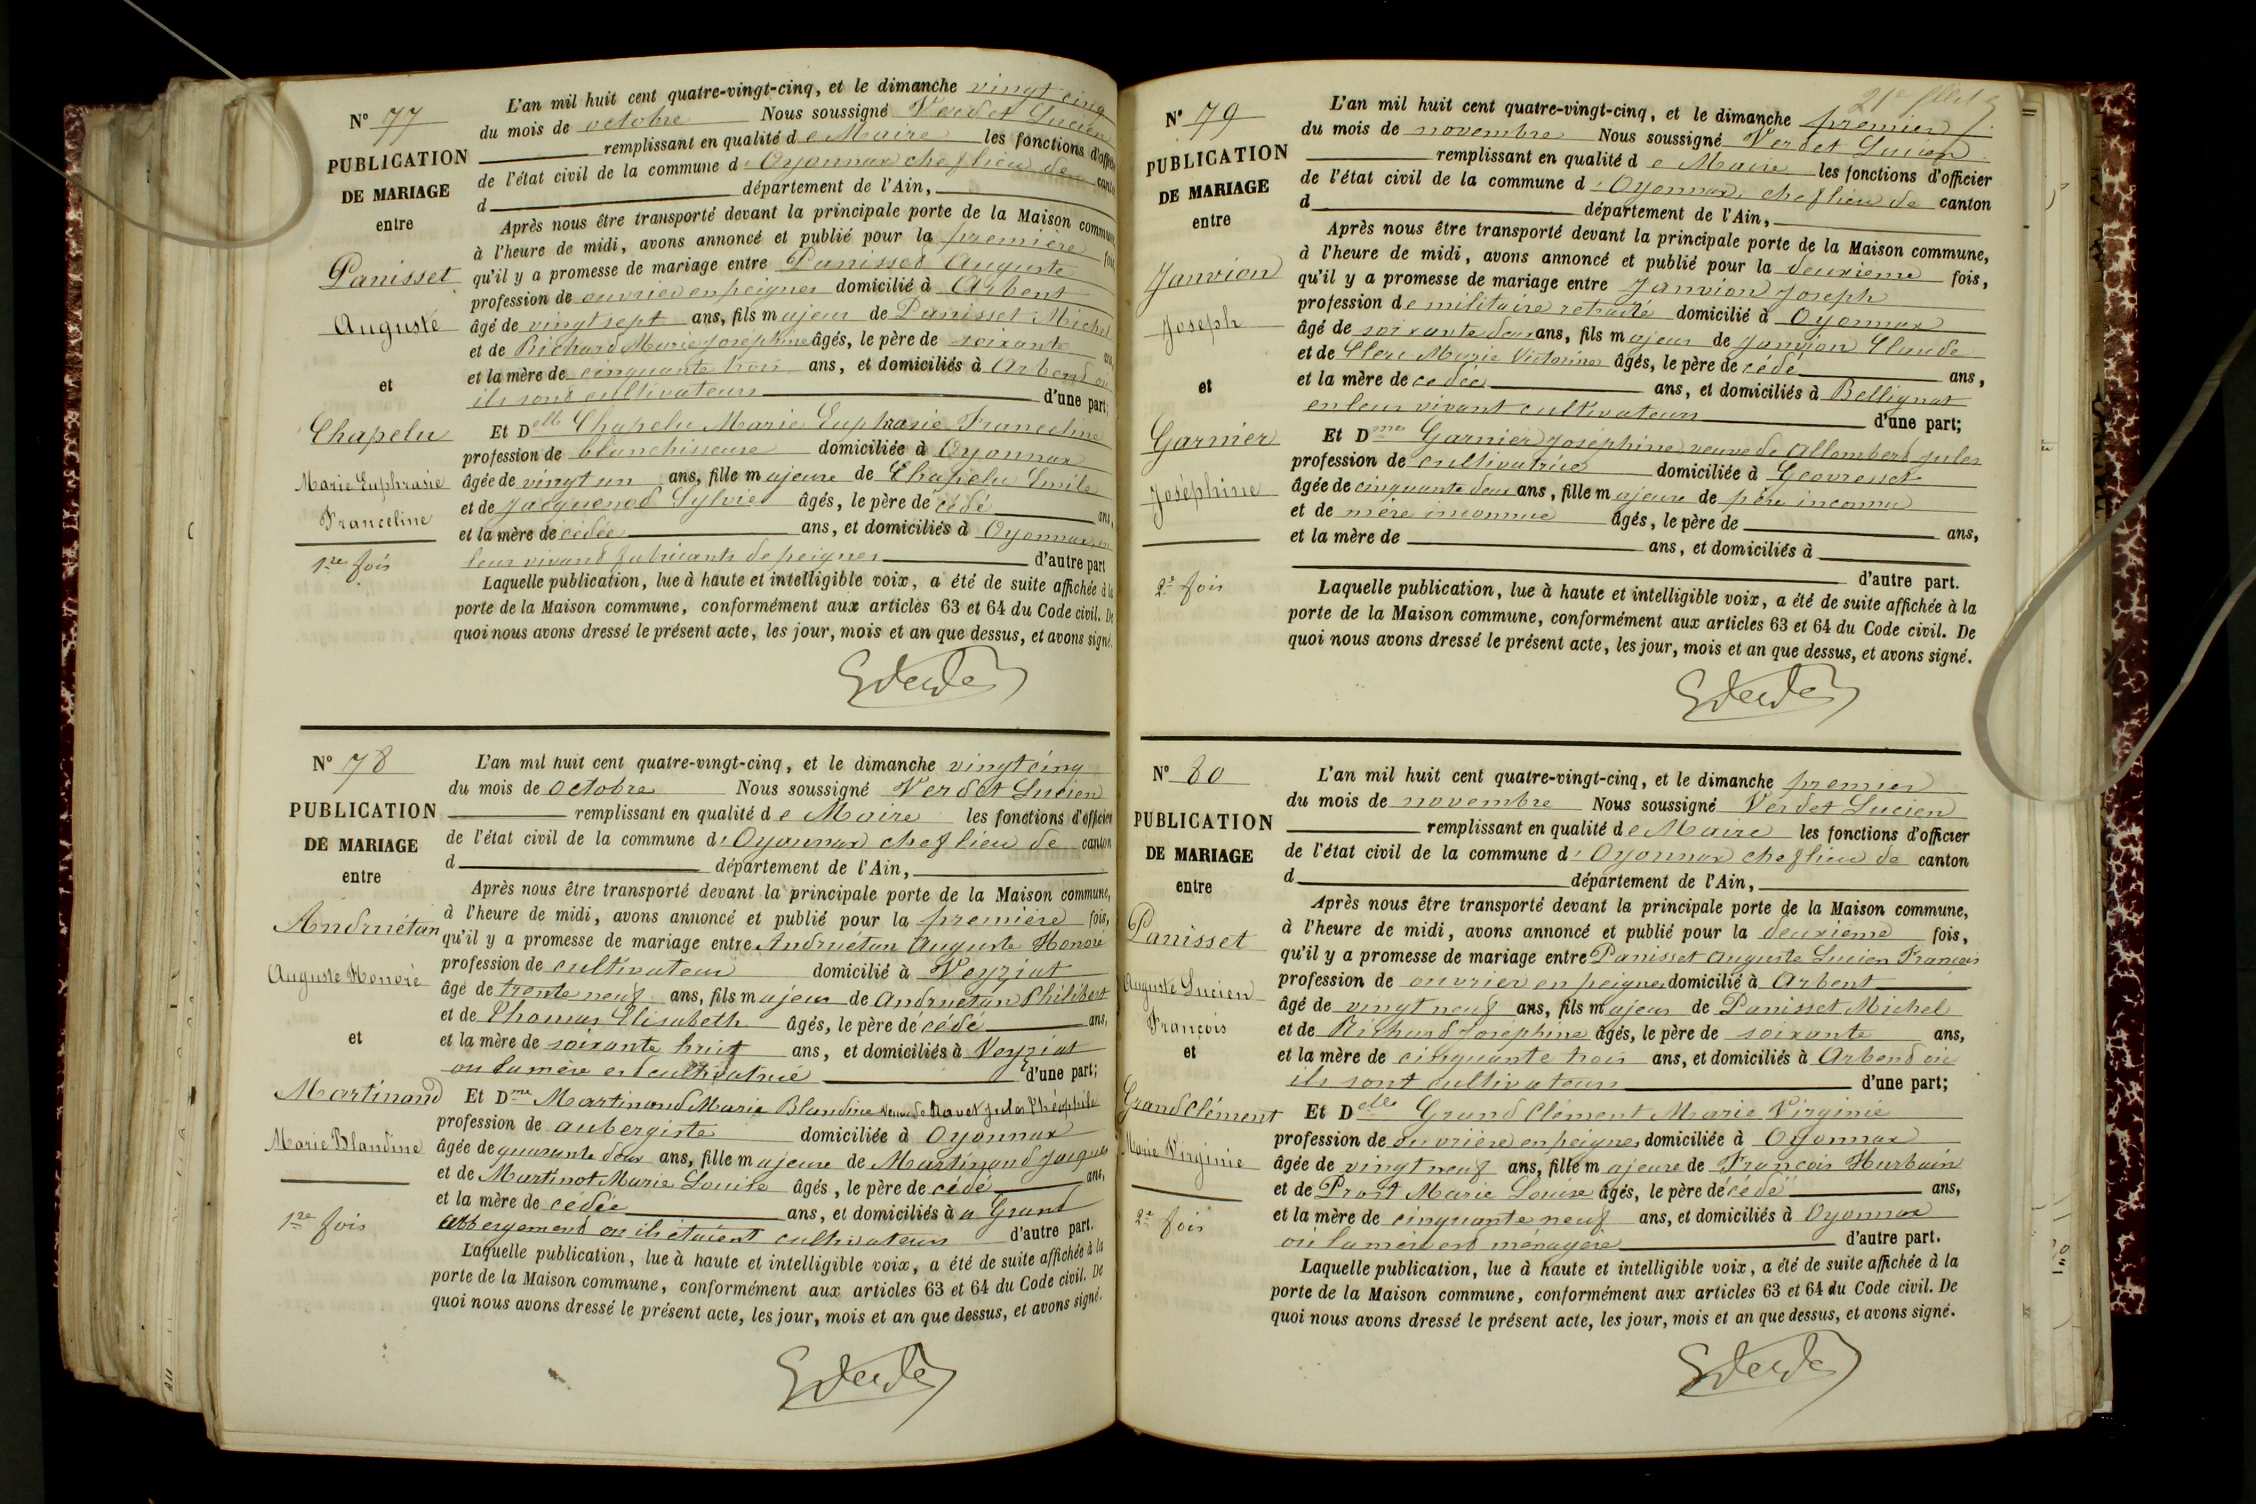 N° 77
PUBLICATION
DE MARIAGE
entre
Panisset
Auguste
et
Chapelu
Marie Euphrasie
Franceline
1re fois
L'an mil huit cent quatre-vingt-cinq, et le dimanche vingt cinq
du mois de octobre Nous soussigné Verdet Lucien
remplissant en qualité de Maire les fonctions d'officier
de l'état civil de la commune d'Oyonnax chef lieu de canton
d département de l'Ain,
Après nous être transporté devant la principale porte de la Maison commune,
à l'heure de midi, avons annoncé et publié pour la première fois,
qu'il y a promesse de mariage entre Panisset Auguste
profession de ouvrier en peignes domicilié à Arbent
âgé de vingt sept ans, fils majeur de Panisset Michel
et de Richard Marie Josephine âgés, le père de soixante ans,
et la mère de cinquante trois ans, et domiciliés à Arbend où
ils sont cultivateurs d'une part;
Et Delle Chapelu Marie Euphrasie Franceline
profession de blanchisseuse domiciliée à Oyonnax
âgée de vingt un ans, fille majeure de Chapelu Emile
et de Jacquenod Sylvie âgés, le père de cédé ans,
et la mère de cédée ans, et domiciliés à Oyonnax en
leur vivant fabricants de peignes d'autre part
Laquelle publication, lue à haute et intelligible voix, a été de suite affichée à la
porte de la Maison commune, conformément aux articles 63 et 64 du Code civil. De
quoi nous avons dressé le présent acte, les jour, mois et an que dessus, et avons signé.
N° 78
PUBLICATION
DE MARIAGE
entre
Andruétan
Auguste Honoré
et
Martinand
Marie Blandine
1re fois
L'an mil huit cent quatre-vingt-cinq, et le dimanche vingt cinq
du mois de octobre Nous soussigné Verdet Lucien
remplissant en qualité de Maire les fonctions d'officier
de l'état civil de la commune d'Oyonnax chef lieu de canton
d département de l'Ain,
Après nous être transporté devant la principale porte de la Maison commune,
à l'heure de midi, avons annoncé et publié pour la première fois,
qu'il y a promesse de mariage entre Andruétan Auguste Honoré
profession de cultivateur domicilié à Veyziat
âgé de trente neuf ans, fils majeur de Andruétan Philibert
et de Thomas Elisabeth âgés, le père décédé ans,
et la mère de soixante huit ans, et domiciliés à Veyziat
ou la mère est cultivatrice d'une part;
Et Dme Martinand Marie Blandine veuve de Ravet Jules Théophile
profession de aubergiste domiciliée à Oyonnax
âgée de quarante deux ans, fille majeure de Martinand Jacques
et de Martinot Marie Louise âgés, le père de cédé ans,
et la mère de cédée ans, et domiciliés à a Grand
abbergement ou ils étaient cultivateurs d'autre part.
Laquelle publication, lue à haute et intelligible voix, a été de suite affichée à la
porte de la Maison commune, conformément aux articles 63 et 64 du Code civil. De
quoi nous avons dressé le présent acte, les jour, mois et an que dessus, et avons signé.
N° 79
PUBLICATION
DE MARIAGE
entre
Janvion
Joseph
et
Garnier
Joséphine
2e fois
L'an mil huit cent quatre-vingt-cinq, et le dimanche premier
du mois de novembre Nous soussigné Verdet Lucien
remplissant en qualité de Maire les fonctions d'officier
de l'état civil de la commune d'Oyonnax, chef lieu de canton
d département de l'Ain,
Après nous être transporté devant la principale porte de la Maison commune,
à l'heure de midi, avons annoncé et publié pour la deuxième fois,
qu'il y a promesse de mariage entre Janvion Joseph
profession de militaire retraité domicilié à Oyonnax
âgé de soixante deux ans, fils majeur de Janvion Claude
et de Clerc Marie Victorine âgés, le père de cédé ans,
et la mère de cedée ans, et domiciliés à Bellignat
en leur vivant cultivateurs d'une part;
Et Dme Garnier Joséphine veuve de Allombert Jules
profession de cultivatrice domiciliée à Geovresset
âgée de cinquante deux ans, fille majeure de père inconnu
et de mère inconnue âgés, le père de ans,
et la mère de ans, et domiciliés à
d'autre part.
Laquelle publication, lue à haute et intelligible voix, a été de suite affichée à la
porte de la Maison commune, conformément aux articles 63 et 64 du Code civil. De
quoi nous avons dressé le présent acte, les jour, mois et an que dessus, et avons signé.
N° 80
PUBLICATION
DE MARIAGE
entre
Panisset
Auguste Lucien
François
et
Grand Clément
Marie Virginie
2e fois
L'an mil huit cent quatre-vingt-cinq, et le dimanche premier
du mois de novembre Nous soussigné Verdet Lucien
remplissant en qualité de Maire les fonctions d'officier
de l'état civil de la commune d'Oyonnax chef lieu de canton
d département de l'Ain,
Après nous être transporté devant la principale porte de la Maison commune,
à l'heure de midi, avons annoncé et publié pour la deuxième fois,
qu'il y a promesse de mariage entre Panisset Auguste Lucien François
profession de ouvrier en peignes domicilié à Arbent
âgé de vingt neuf ans, fils majeur de Panisset Michel
et de Richard Joséphine âgés, le père de soixante ans,
et la mère de cinquante trois ans, et domiciliés à Arbend où
ils sont cultivateurs d'une part;
Et Delle Grand Clément Marie Virginie
profession de ouvrière en peignes domiciliée à Oyonnax
âgée de vingt neuf ans, fille majeure de François Hurbain
et de Prost Marie Louise âgés, le père décédé ans,
et la mère de cinquante neuf ans, et domiciliés à Oyonnax
où la mère est ménagère d'autre part.
Laquelle publication, lue à haute et intelligible voix, a été de suite affichée à la
porte de la Maison commune, conformément aux articles 63 et 64 du Code civil. De
quoi nous avons dressé le présent acte, les jour, mois et an que dessus, et avons signé.